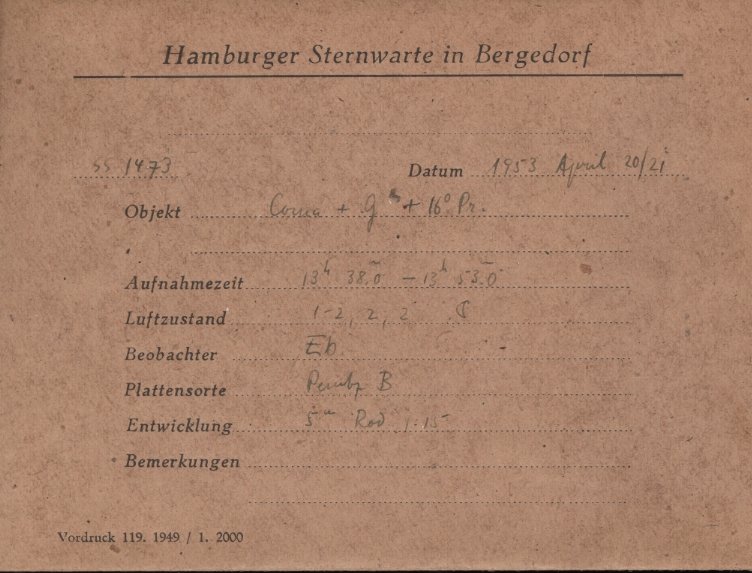 Hamburger Sternwarte in Bergedorf
SS 1473 Datum 1953 April 20/21
Objekt Coma + G + 16° Pr.
Aufnahmezeit 13h 38.0m – 13h 53.0m
Luftzustand 1-2, 2, 2
Beobachter Eb.
Plattensorte B
Entwicklung 5m Rod 1:15
Bemerkungen
Vordruck 119. 1949 / 1. 2000